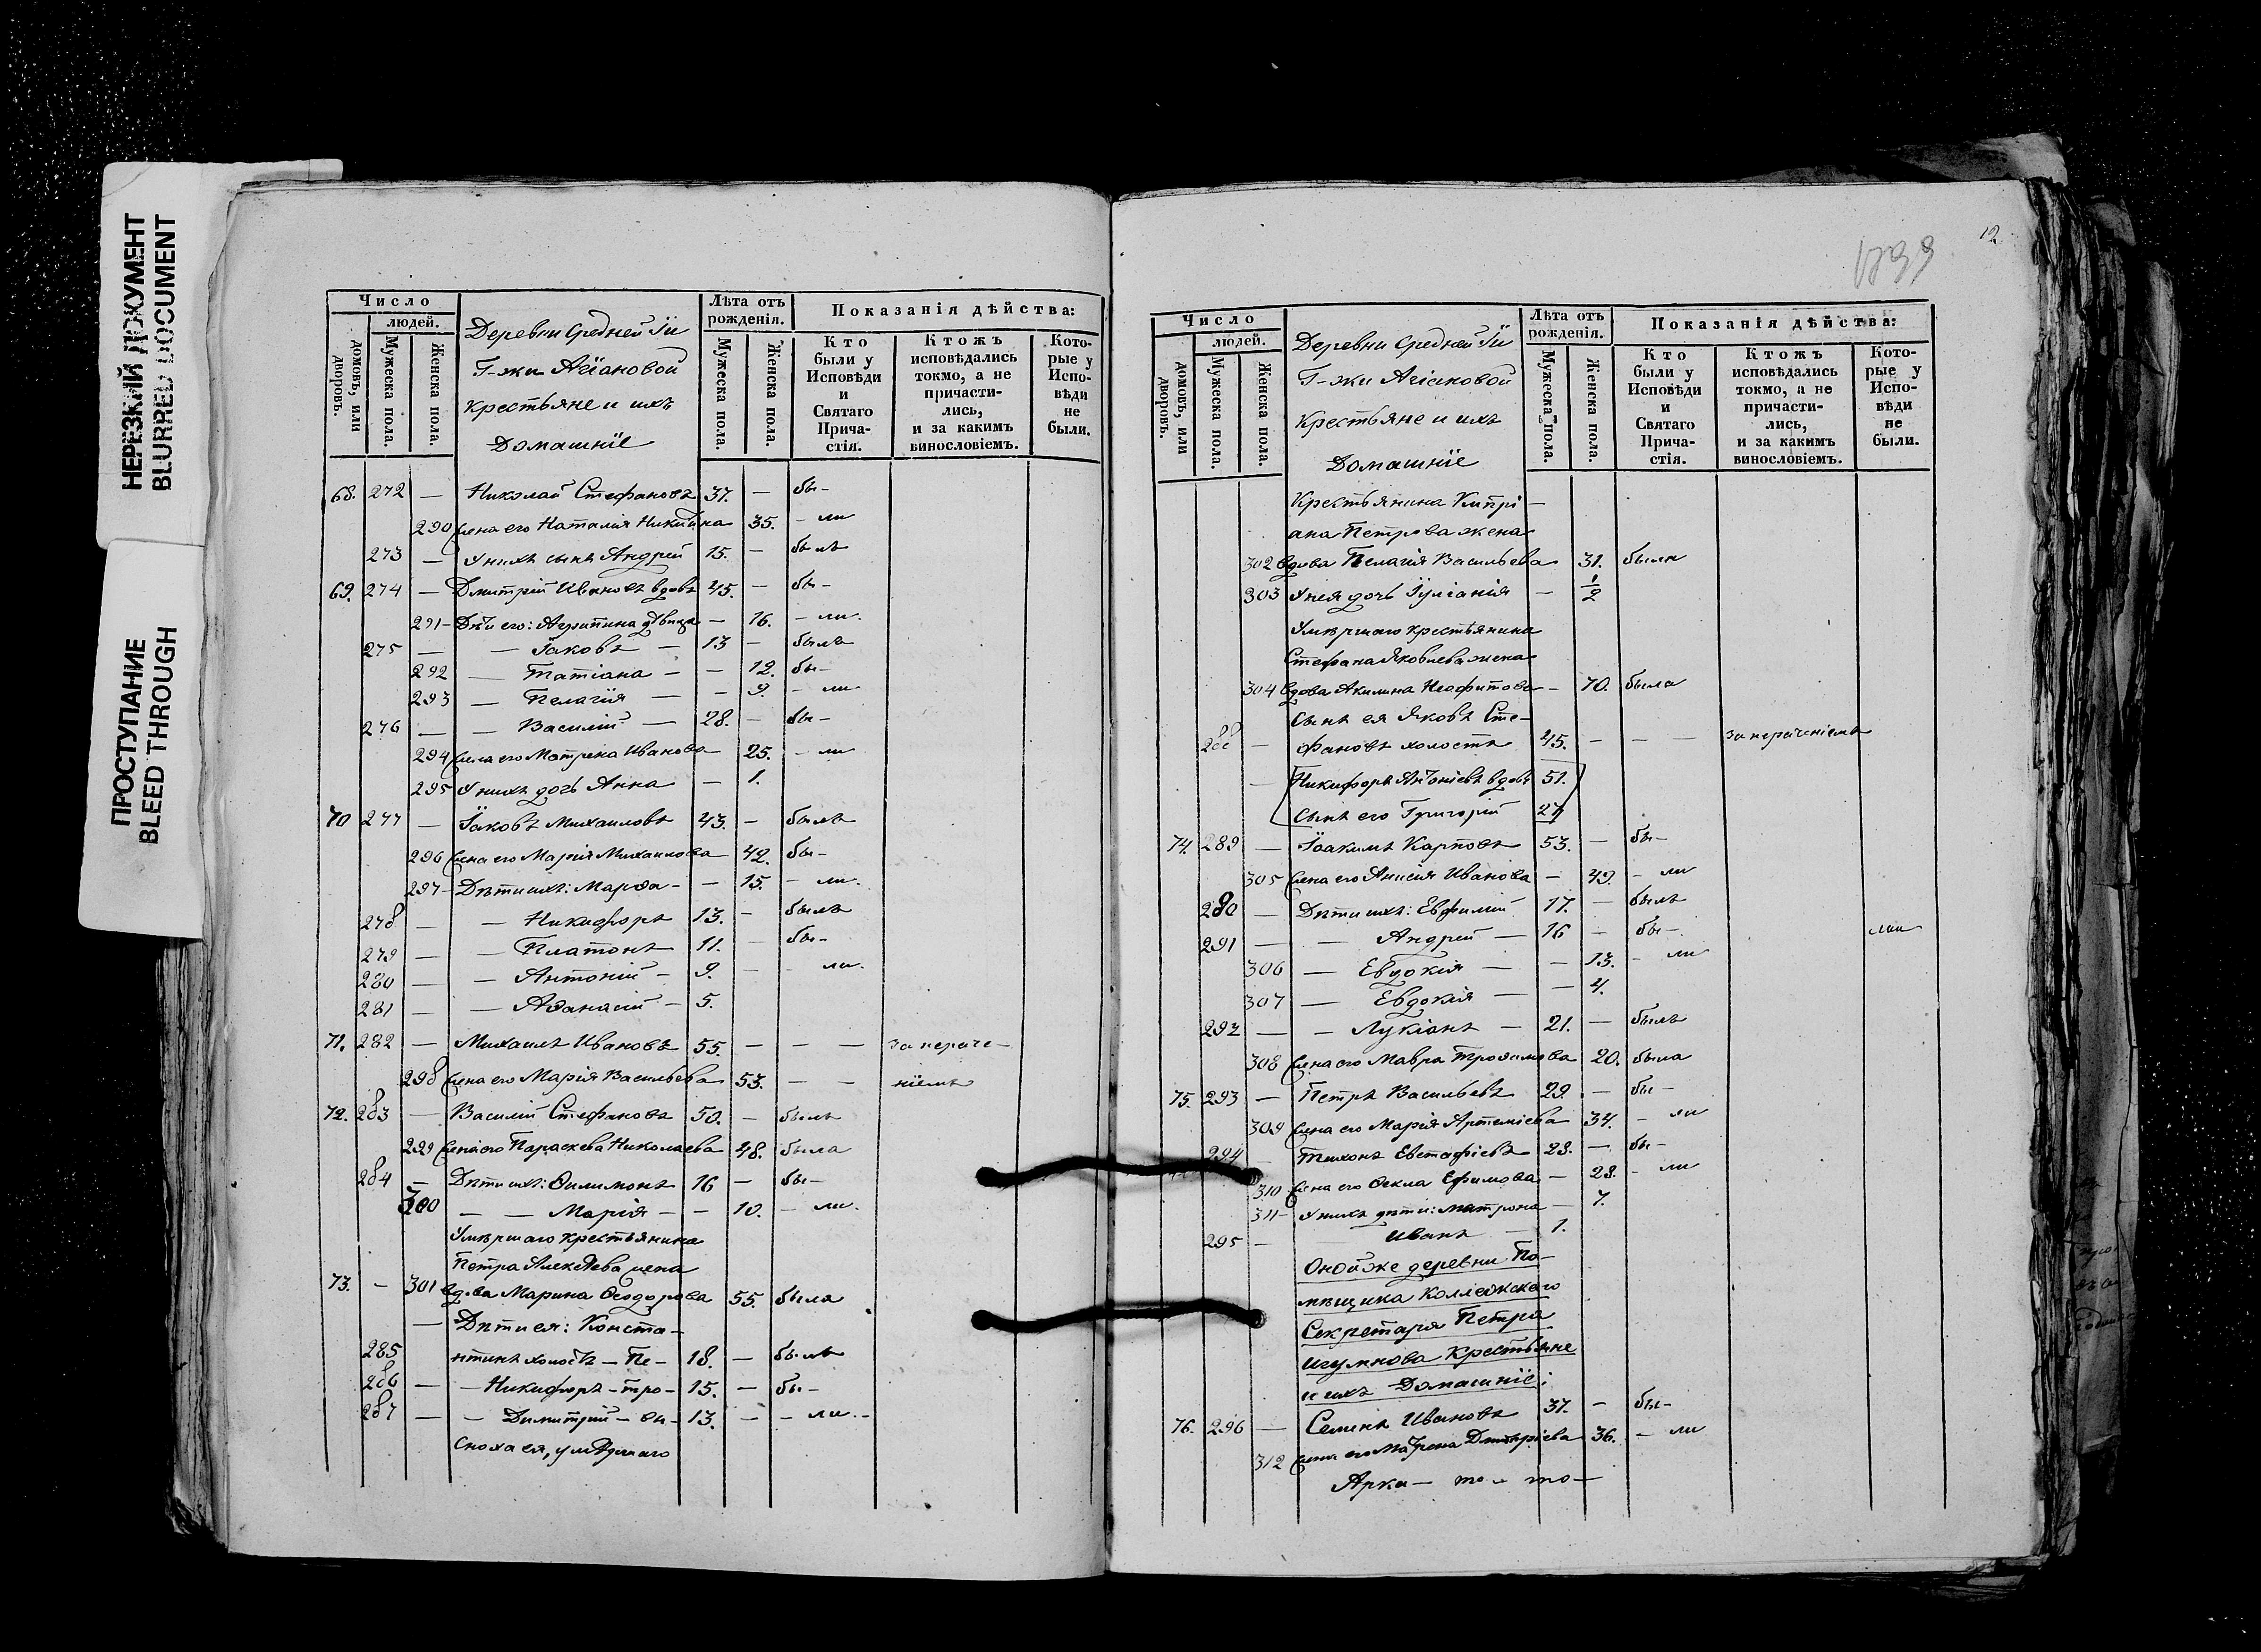 НЕРЕЗКИЙ ДОКУМЕНТ
BLURRED DOCUMENT
ПРОСТУПАНИЕ
BLEED THROUGH
Число
людей.
домовъ, или дворовъ.
Мужеска пола.
Женска пола.
Деревни Средней Iи
Г-жи Агiановой
крестьяне и ихъ
Домашнiе
Лѣта отъ рожденiя.
Мужеска пола.
Женска пола.
Показанiя дѣйства:
Кто были у Исповѣди и Святаго Прича-стiя.
Ктожъ исповѣдались токмо, а не причасти-лись, и за какимъ винословiемъ.
Кото-рые у Испо-вѣди не были.
68. 272 — Николай Стефановъ 37. — бы-
290 жена его Наталiя Никит на 35. - ли
273 — У нихъ сынъ Андрей 15. — былъ
69. 274 — Дмитрiй Ивановъ вдовъ 45. — бы-
291 - Дѣти его: Агрипина дѣвица — 16. - ли.
275 — — Iаковъ — 13 — былъ
292 — Татiана — — 12. бы-
293 — Пелагiя — — 9. - ли
276 — — Василiй — 28. — бы-
294 жена его Матрена Иванова 25. - ли
295 У нихъ дочь Анна — 1.
70 277 — Iаковъ Михаиловъ 43. — былъ
296 жена его Марiя Михаилова 42. бы-
297 - Дѣти ихъ: Марѳа - — 15. - ли.
278 — — Никифоръ 13. — былъ
279 — — Платонъ 11. — бы-
280 — — Антонiй - 9. — - ли.
281 — — Аѳанасiй — 5.
71. 282 — Михаилъ Ивановъ 55. — — — за нераче-
298 жена его Марiя Васильева 53. — — нiемъ
72. 283 — Василiй Стефановъ 50. — былъ
299 жена его Параскева Николаева 48. была
284 — Дѣти ихъ: Филимонъ 16 — бы-
300 — — Марiя — — 10. - ли.
Умѣршаго крестьянина
Петра Алексѣева жена
73. — 301 вдова Марина Ѳеодорова 55. была
— Дѣти ея: Конста-
285 нтинъ холостъ — Пе- 18. — былъ
286 — — Никифоръ - тро- 15. — бы-
287 — — Димитрiй - вы- 13. — - ли.-
Сноха ея, умѣршаго
12
Число
людей.
домовъ, или дворовъ.
Мужеска пола.
Женска пола.
Деревни Средней Iи
Г-жи Агiановой
Крестьяне и ихъ
Домашнiе
Лѣта отъ рожденiя.
Мужеска пола.
Женска пола.
Показанiя дѣйства:
Кто были у Исповѣди и Святаго Прича-стiя.
Ктожъ исповѣдались токмо, а не причасти-лись, и за какимъ винословiемъ.
Кото-рые у Испо-вѣди не были.
Крестьянина Кипрi —
ана Петрова жена
302 вдова Пелагiя Васильева 31. была
303 У нея дочь Iулiанiя — 1/2
Умѣршаго крестьянина
Стефана Яковлева жена
304 вдова Акилина Неофитова — 70. была
Сынъ ея Яковъ Сте-
288 — фановъ холостъ 45. — — — за нераченiемъ
— Никифоръ Антонiевъ вдовъ 51.
Сынъ его Григорiй 27
74. 289 — Iоакимъ Карповъ 53. — бы-
305 жена его Анисiя Иванова — 49. - ли
280 — Дѣти ихъ: Евфимiй 17. — былъ
291 — — Андрей — 16 — бы-.
306 — Евдокiя — — 13. - ли
307 — Евдокiя — — 4.
292 — — Лукiанъ — 21. — былъ
308 жена его Мавра Трофимова 20. была
75. 293 — Петръ Васильевъ 29. — бы-
309 жена его Марiя Артемiева 34. - ли
294 — Тихонъ Евстафiевъ 28. — бы-
310 жена его Ѳекла Ефимова — 28. - ли
311 - У нихъ дѣти: Матрона — 7.
295 — Иванъ — 1.
Оной же деревни По-
мѣщика Коллежскаго
Секретаря Петра
Игумнова Крестьяне
и ихъ Домашнiе:
76. 296 — Семенъ Ивановъ 37. — бы-
312 жена его Матрена Дмитрiева 36. - ли